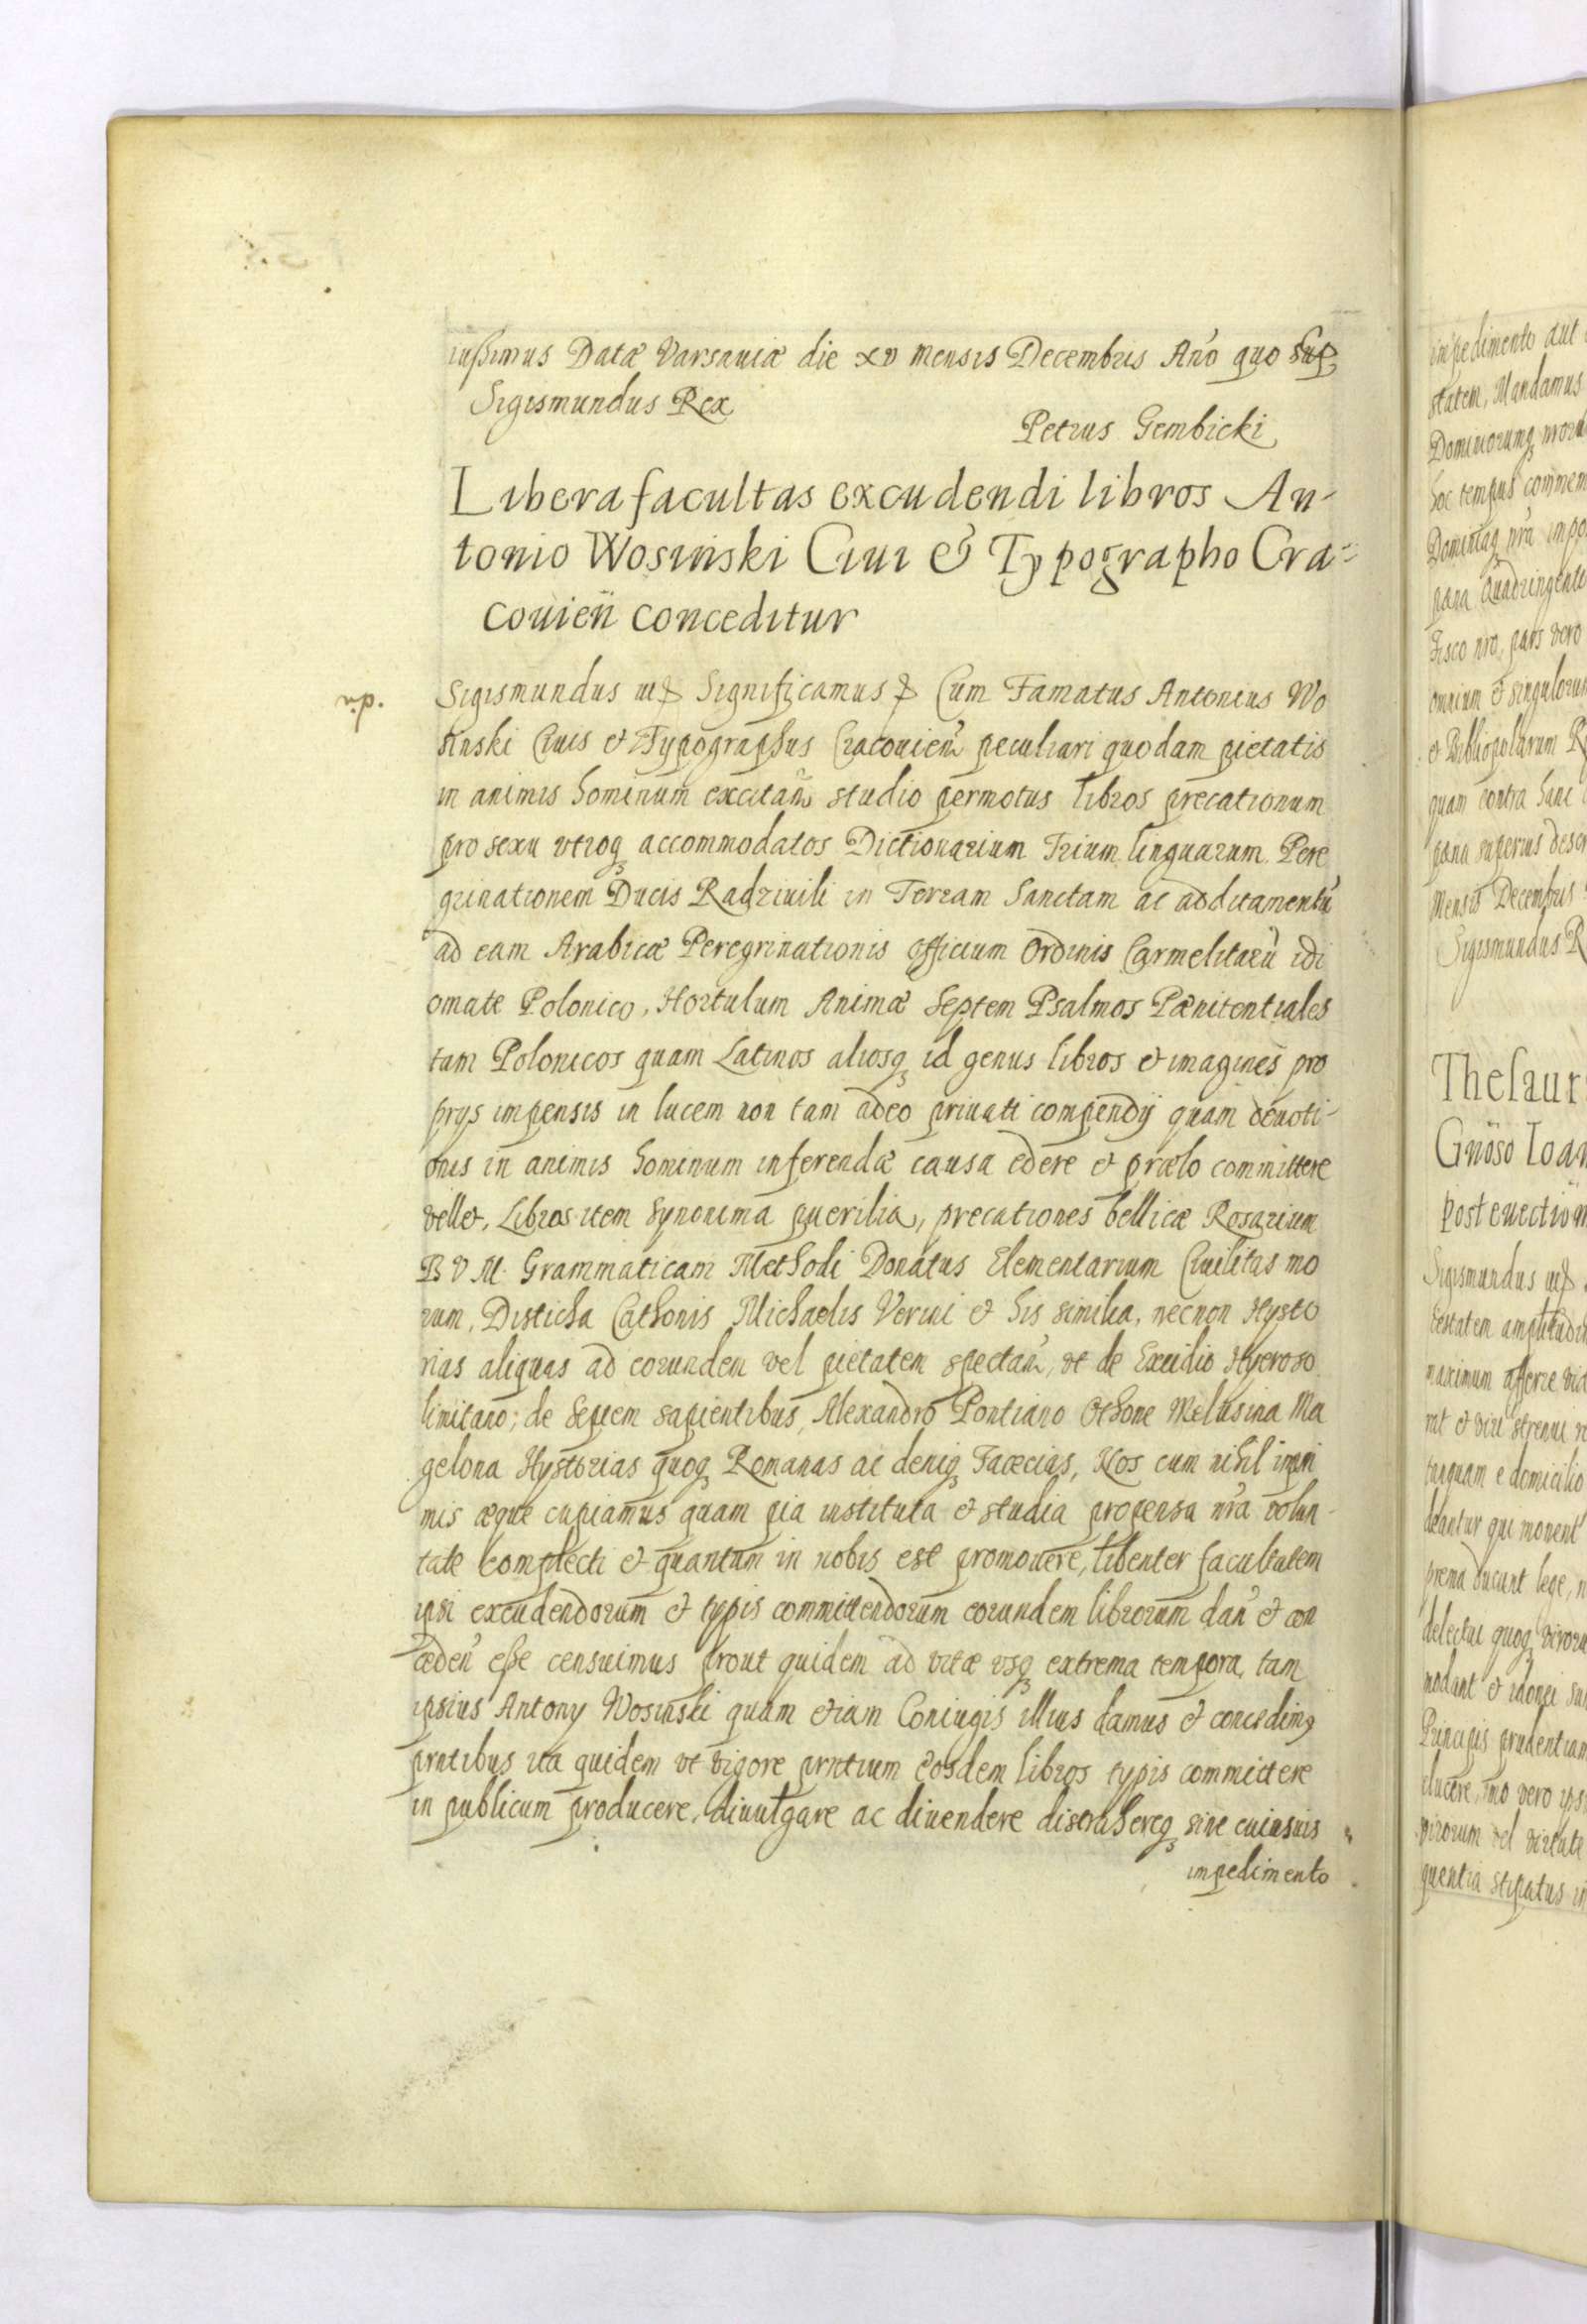 iussimus Datæ Varsauiæ die xv mensis Decembris Año quo sup
Sigismundus Rex
Petrus Gembicki
Libera facultas excudendi libros An-
tonio Wosiński Ciui & Typographo Cra-
couieñ conceditur
Sigismundus Significamus Cum Famatus Antonius Wo
sinski Ciuis et Typographus Cracouieñ peculiari quodam pietatis
in animis hominum excitañ studio permotus libros precationum
pro sexu vtroq accommodatos Dictionarium Trium linguarum Pere
grinationem Ducis Radziuili in Terram Sanctam ac additamentũ
ad eam Arabicæ Peregrinationis officium Ordinis Carmelitarũ idi
omate Polonico, Hortulum Animæ Septem Psalmos Pænitentiales
tam Polonicos quam Latinos aliosq id genus libros et imagines pro
prys impensis in lucem non tam adeo priuati compendij quam deuoti-
onis in animis hominum inferendæ causa edere et prælo committere
vellet, Libros item Synonima puerilia, precationes bellicæ Rosarium
B V M. Grammaticam Methodi Donatus Elementarium Ciuilitas mo
rum, Disticha Cathonis Michaelis Verini et his similia, necnon Hysto
rias aliquas ad eorundem vel pietatem spectañ, vt de Excidio Hyeroso
limitano; de Septem sapientibus, Alexandro Pontiano Othone Melusina Ma
gelona Hystorias quoq Romanas ac deniq Facecias, Nos cum nihil in pri
mis æque cupiamus quam pia instituta et studia propensa nrã volun-
tate complecti et quantum in nobis est promouere, libenter facultatem
ipsi excudendorum et typis committendorum eorundem librorum dañ et con
cedeñ esse censuimus prout quidem ad vitæ vsq extrema tempora, tam
ipsius Antony Wosinski quam etiam Coniugis illius damus et concedimq
prntibus ita quidem vt vigore prntium eosdem libros typis committere
in publicum producere, diuulgare ac diuendere distrahereq sine cuiusuis
impedimento
impedimento aut
statem, Mandamus
hoc tempus commem
Fisco nro, pars vero
omnium et singulorum
et Bibliopolarum
quam contra hanc
pæna superius descr
Mensis Decembris
Sigismundus R
Thesaur
Gnöso Ioan
post euection
Sigismundus
maximum afferre
tanquam e domicilio
deantur qui mouent
prema ducunt lege, n
Principis prudentiam
elucere, imo vero
virorum vel virtute
quentia stipatus in